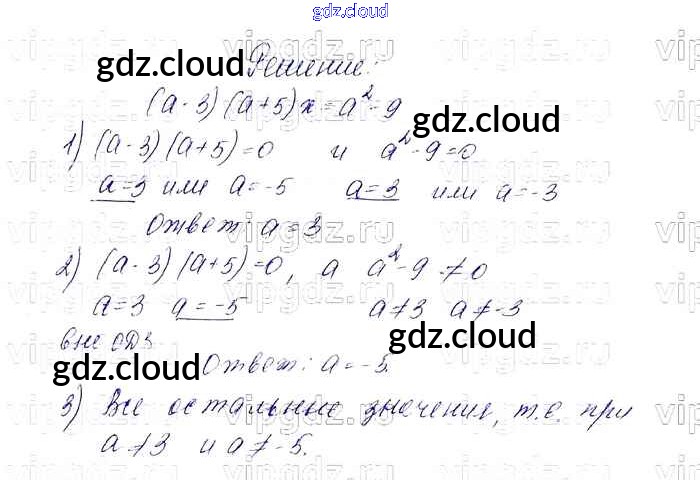 gdz.cloud
Решение:
(a-3)(a+5)x=a²-9
1) (a-3)(a+5)=0 и a²-9=0
a=3 или a=-5 a=3 или a=-3
Ответ: a=3
2) (a-3)(a+5)=0, а a²-9≠0
a=3 a=-5 a≠3 a≠-3
вне ОДЗ
Ответ: a=-5.
3) Все остальные значения, т.е. при
a≠3 и a≠-5.
gdz.cloud
gdz.cloud
gdz.cloud
gdz.cloud
gdz.cloud
vipgdz.ru